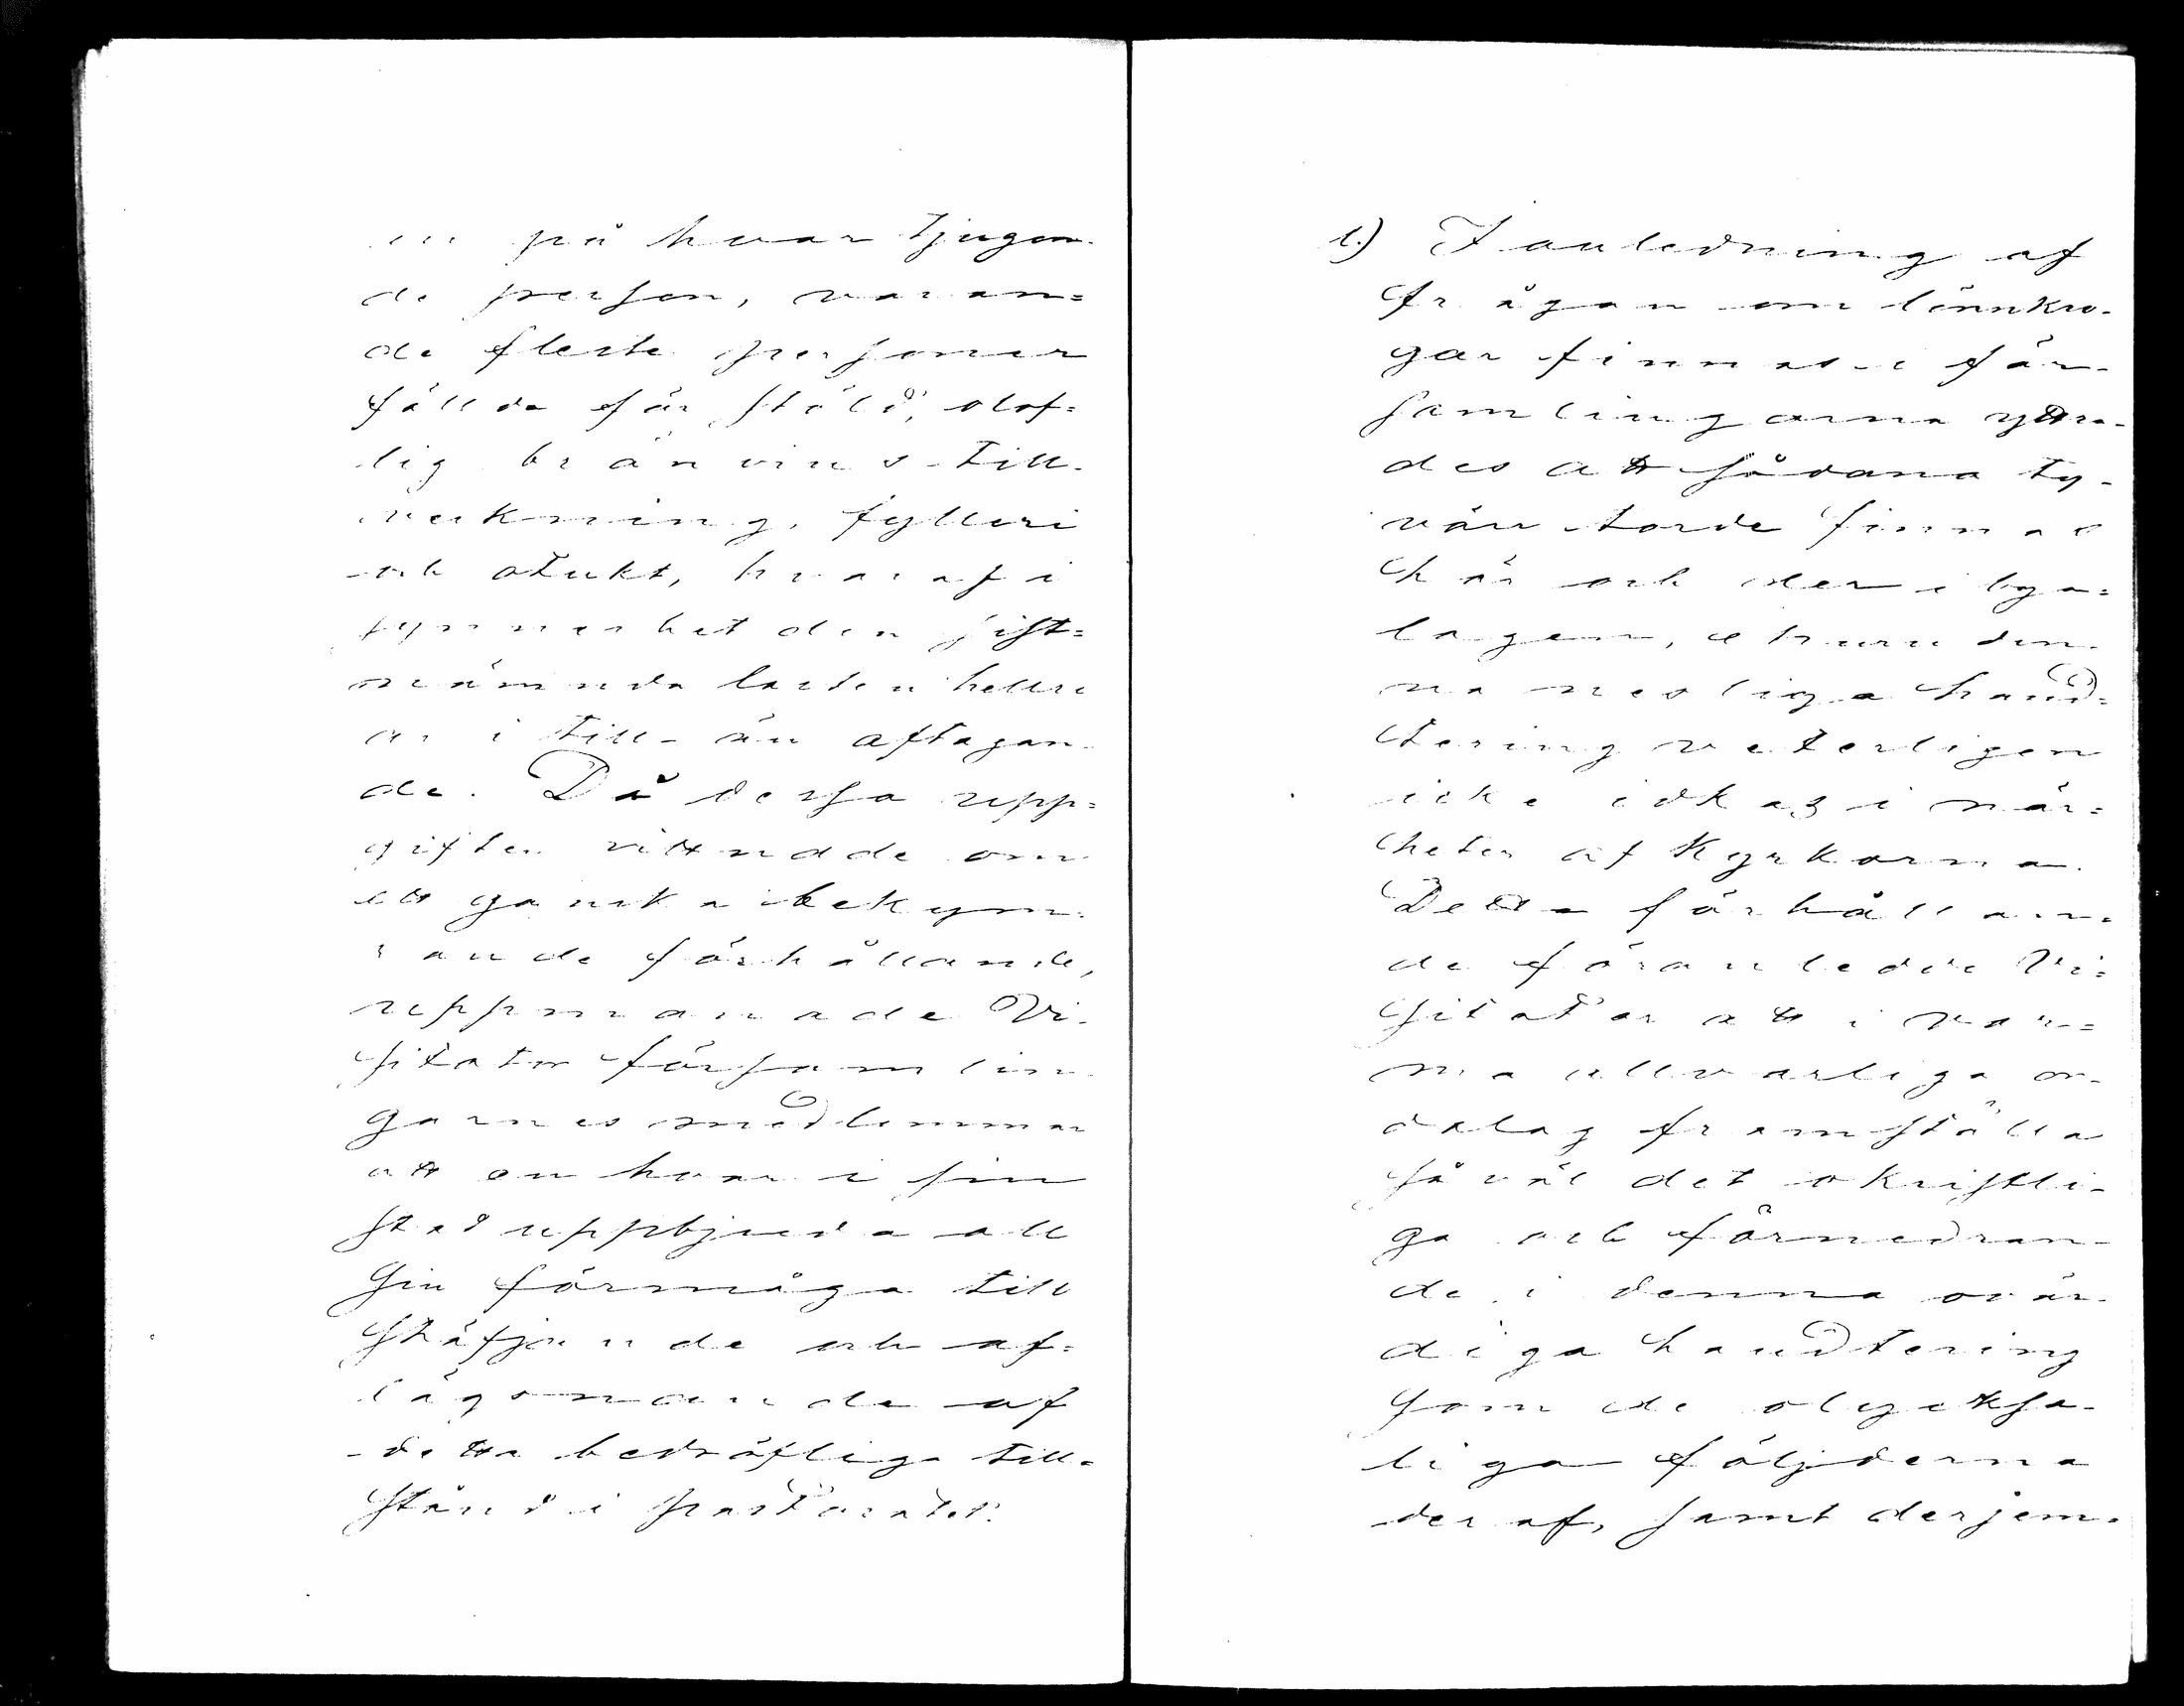 en på hvar tjugon-
de person, varan=
de fleste personer
fällda för stöld, olof=
lig bränvins-till-
verkning, fylleri
och otukt, hvaraf i
synnerhet den sist=
nämnda lasten hellre
är i till- än aftagan-
de. Då dessa upp=
gifter vittnade om
ett ganska bekym-
rande förhållande,
uppmanade Vi-
sitator församlin-
garnes medlemmar
att en hvar i sin
stad uppbjuda all
sin förmåga till
stäfjande och af-
lägsnande af
detta bedröfliga till-
stånd i pastoratet.
l.) I anledning af
frågan om lönnkro-
gar finnas i för-
samlingarna yttra-
des att sådana ty-
värr torde finnas
här och der i bya=
lagen, ehuru den-
na nesliga hand=
tering veterligen
icke idkas i när=
heten af Kyrkorna.
Detta förhållan-
de föranledde Vi-
sitator att i var-
ma allvarliga or-
dalag framställa
såväl det okristli-
ga och förnedran-
de i denna ovär-
diga handtering
som de olycksa-
liga följderna
deraf, samt derjem-